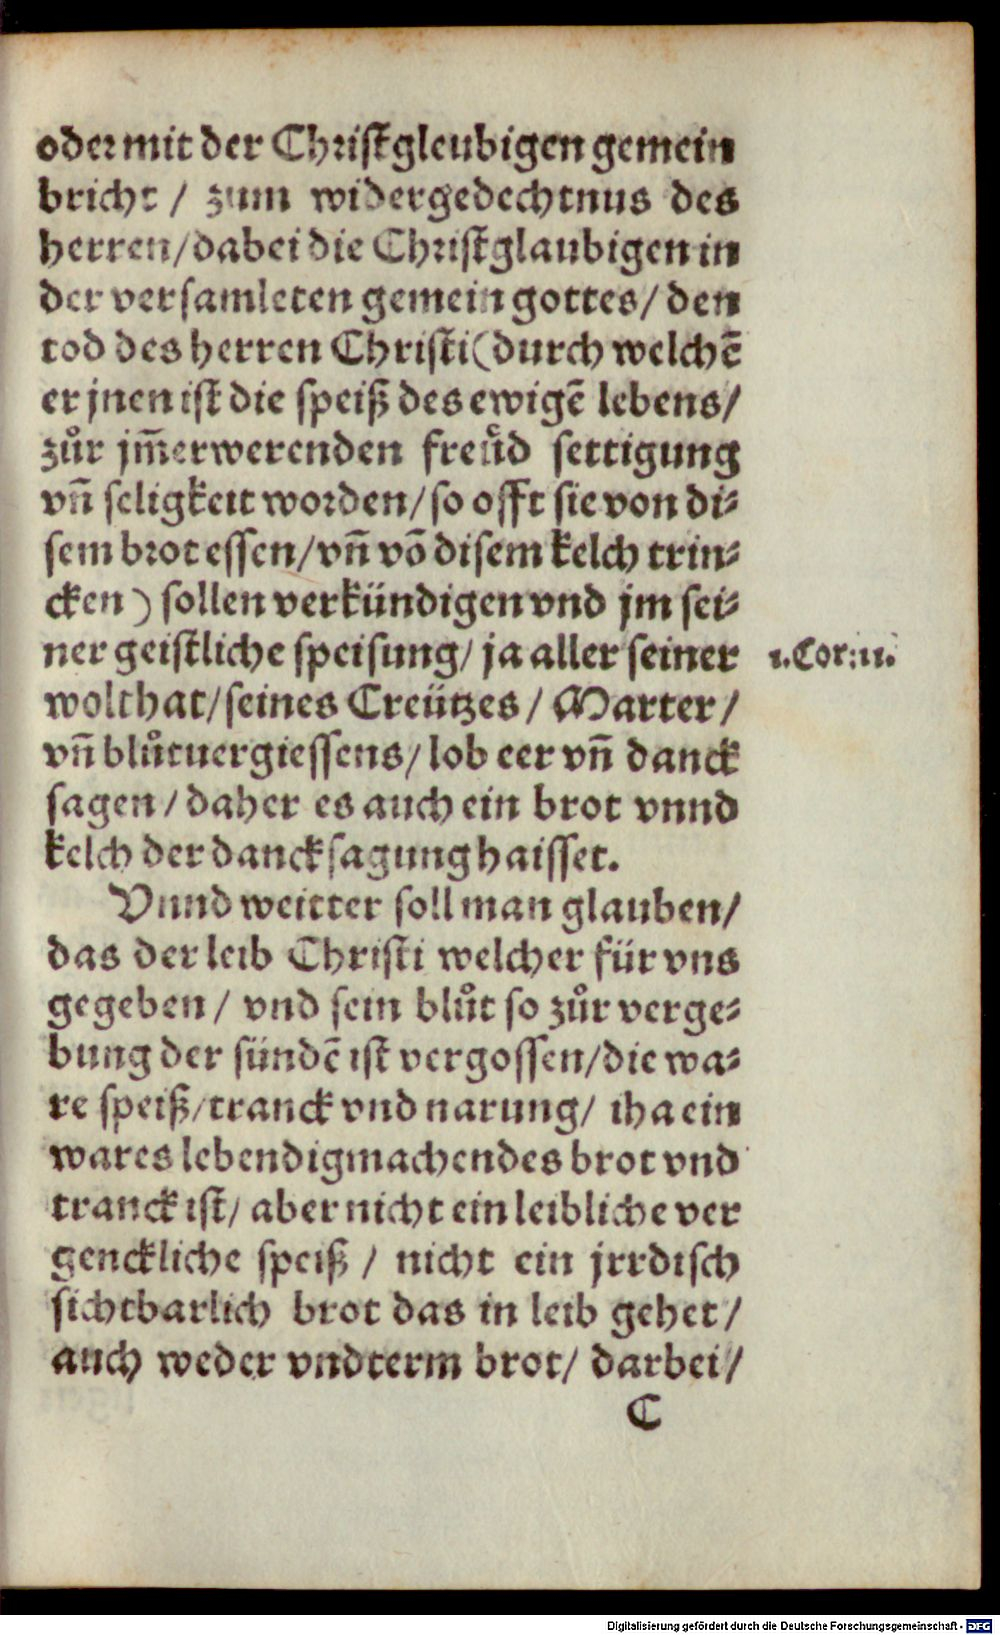 oder mit der Christgleubigen gemein
bricht / zum widergedechtnus des
herren/dabei die Christglaubigen in
der versamleten gemein gottes/ den
tod des herren Christi (durch welchẽ
er jnen ist die speiß des ewigẽ lebens/
zůr jm̃erwerenden freüd settigung
vñ seligkeit worden/so offt sie von di⸗
sem brot essen/vñ võ disem kelch trin⸗
cken) sollen verkündigen vnd jm sei⸗
ner geistliche speisung/ ja aller seiner
1.Cor:11.
wolthat/seines Creützes/ Marter/
vñ blůtuergiessens/ lob eer vñ danck
sagen/ daher es auch ein brot vnnd
kelch der dancksagung haisset.
Vnnd weitter soll man glauben/
das der leib Christi welcher für vns
gegeben/ vnd sein blůt so zůr verge⸗
bung der sündẽ ist vergossen/die wa⸗
re speiß/tranck vnd narung/ iha ein
wares lebendigmachendes brot vnd
tranck ist/ aber nicht ein leibliche ver
genckliche speiß / nicht ein jrrdisch
sichtbarlich brot das in leib gehet/
auch weder vndterm brot/ darbei/
C
Digitalisierung gefördert durch die Deutsche Forschungsgemeinschaft - DFG